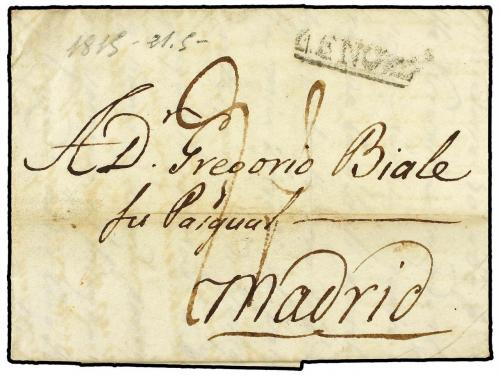 1815-21.5-
GENOVA
A D.n Gregorio Biale
fu Pasqual
Madrid